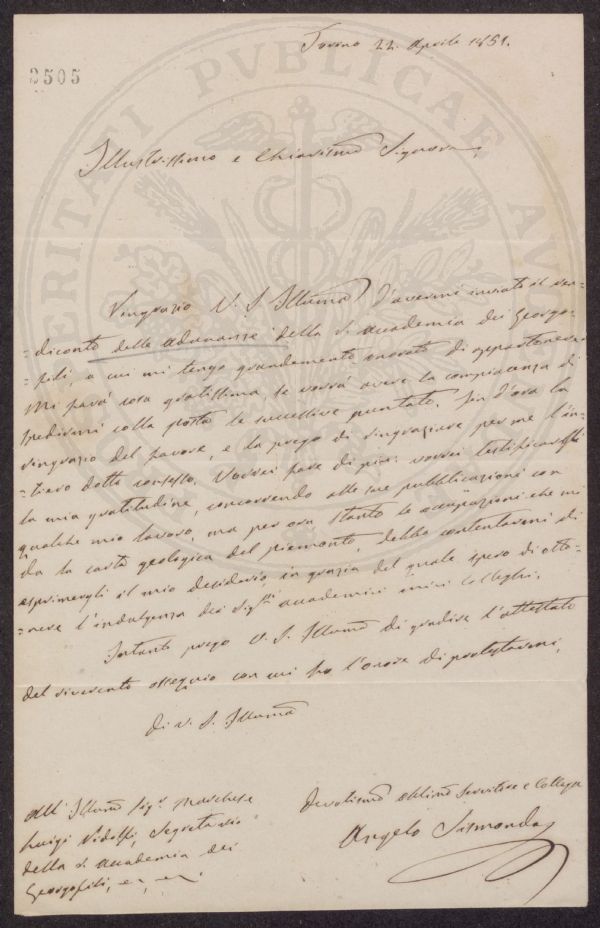 Torino 22 Aprile 1851.
2505
Illustrissimo e Chiarissimo Signore,
Ringrazio V. S. Illma d'avermi inviato il ren-
-diconto delle adunanze della R. Accademia dei Georgo-
-fili, a cui mi tengo grandemente onorato di appartenere.
Mi farà cosa gratissima, se vorrà avere la compiacenza di
spedirmi colla posta le successive puntate. Fin d'ora la
ringrazio del favore, e la prego di ringraziare per me l'in-
-tiero dotto consesso. Vorrei fare di più: vorrei testificar
la mia gratitudine, concorrendo alle sue pubblicazioni con
qualche mio lavoro, ma per ora stante le occupazioni che mi
dà la carta geologica del piemonte, debbo contentarmi di
esprimergli il mio desiderio, in grazia del quale spero di otte-
-nere l'indulgenza dei Sigri accademici miei Colleghi.
Intanto prego V. S. Illma di gradire l'attestato
del riverente ossequio con cui ho l'onore di protestarmi,
di V. S. Illma
All' Illmo Sigr Marchese
Luigi Ridolfi, Segretario
della R. Accademia dei
Georgofili,
Devotissmo obblmo Servitore e Collega
Angelo Sismonda
VERITATI PVBLICAE